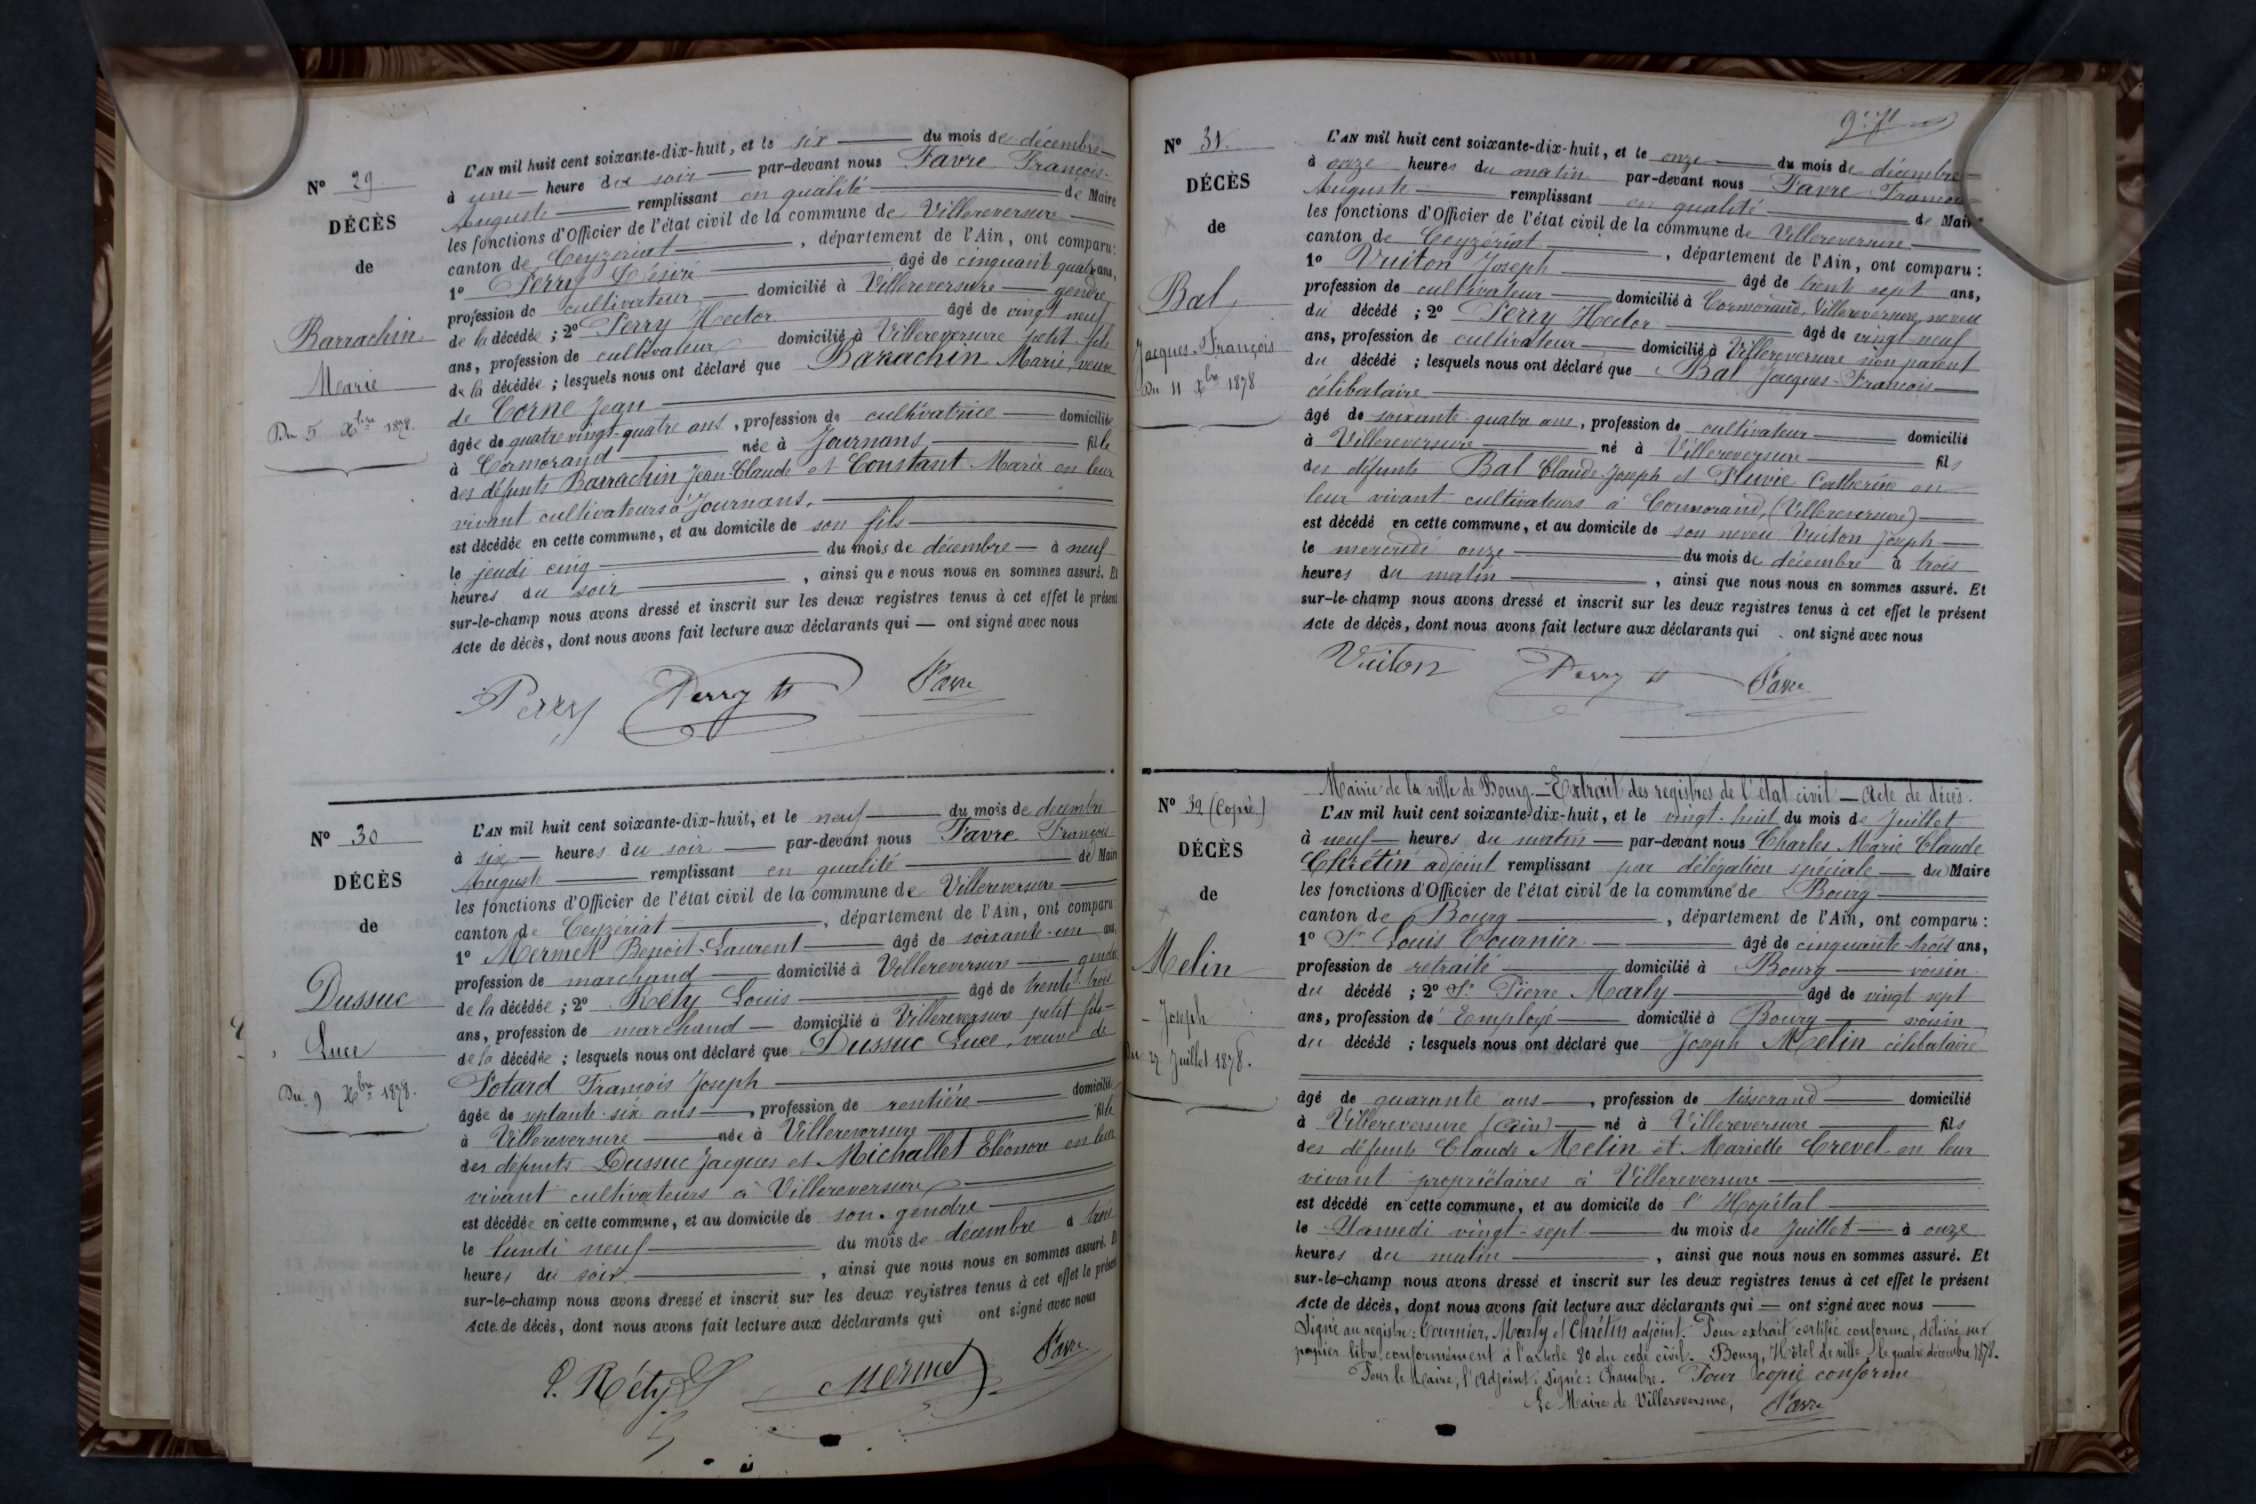 N° 29
DÉCÈS
de
Barrachin
Marie
Du 5 Xbre 1878.
L'AN mil huit cent soixante-dix-huit, et le six du mois de décembre
à une heure du soir par-devant nous Favre François-
Auguste remplissant en qualité de Maire
les fonctions d'Officier de l'état civil de la commune de Villereversure
canton de Ceyzériat, département de l'Ain, ont comparu:
1° Perry Désiré âgé de cinquante quatre ans,
profession de cultivateur domicilié à Villereversure gendre
de la décédée; 2° Perry Hector âgé de vingt neuf
ans, profession de cultivateur domicilié à Villereversure petit-fils
de la décédée; lesquels nous ont déclaré que Barrachin Marie, veuve
de Corne Jean
âgée de quatre vingt-quatre ans, profession de cultivatrice domiciliée
à Cormorand née à Journans, fille
des défunts Barrachin Jean-Claude et Constant Marie en leur
vivant cultivateurs à Journans.
est décédée en cette commune, et au domicile de son fils
le jeudi cinq du mois de décembre à neuf
heures du soir, ainsi que nous nous en sommes assuré. Et
sur-le-champ nous avons dressé et inscrit sur les deux registres tenus à cet effet le présent
Acte de décès, dont nous avons fait lecture aux déclarants qui ont signé avec nous
Perry Perry H Favre
N° 30
DÉCÈS
de
Dussuc
Luce
Du 9 Xbre 1878.
L'AN mil huit cent soixante-dix-huit, et le neuf du mois de décembre
à six heures du soir par-devant nous Favre François
Auguste remplissant en qualité de Maire
les fonctions d'Officier de l'état civil de la commune de Villereversure
canton de Ceyzériat, département de l'Ain, ont comparu
1° Mermet Benoit-Laurent âgé de soixante-un ans,
profession de marchand domicilié à Villereversure gendre
de la décédée; 2° Réty Louis âgé de trente-trois
ans, profession de marchand domicilié à Villereversure petit fils
de la décédée; lesquels nous ont déclaré que Dussuc Luce, veuve de
Potard François Joseph
âgée de septante-six ans, profession de rentière domiciliée
à Villereversure née à Villereversure fille
des défunts Dussuc Jacques et Michallet Eléonore en leur
vivant cultivateurs à Villereversure
est décédée en cette commune, et au domicile de son gendre
le lundi neuf du mois de décembre à trois
heures du soir, ainsi que nous nous en sommes assuré. Et
sur-le-champ nous avons dressé et inscrit sur les deux registres tenus à cet effet le présent
Acte de décès, dont nous avons fait lecture aux déclarants qui ont signé avec nous
L. Réty Mermet Favre
N° 31
DÉCÈS
de
Bal
Jacques-François
Du 11 Xbre 1878
L'AN mil huit cent soixante-dix-huit, et le onze du mois de décembre
à onze heures du matin par-devant nous Favre François
Auguste remplissant en qualité de Maire
les fonctions d'Officier de l'état civil de la commune de Villereversure
canton de Ceyzériat, département de l'Ain, ont comparu:
1° Vuiton Joseph âgé de trente sept ans,
profession de cultivateur domicilié à Cormorand, Villereversure, neveu
du décédé; 2° Perry Hector âgé de vingt-neuf
ans, profession de cultivateur domicilié à Villereversure non parent
du décédé; lesquels nous ont déclaré que Bal Jacques-François
célibataire
âgé de soixante-quatre ans, profession de cultivateur domicilié
à Villereversure né à Villereversure fils
des défunts Bal Claude-Joseph et Pluvie Catherine en
leur vivant cultivateurs à Cormorand, (Villereversure)
est décédé en cette commune, et au domicile de son neveu Vuiton Joseph
le mercredi onze du mois de décembre à trois
heures du matin, ainsi que nous nous en sommes assuré. Et
sur-le-champ nous avons dressé et inscrit sur les deux registres tenus à cet effet le présent
Acte de décès, dont nous avons fait lecture aux déclarants qui ont signé avec nous
Vuiton Perry H Favre
N° 32 (Copie)
DÉCÈS
de
Melin
Joseph
Du 27 Juillet 1878.
Mairie de la ville de Bourg.—Extrait des registres de l'état civil — Acte de décès.
L'AN mil huit cent soixante-dix-huit, et le vingt-huit du mois de Juillet
à neuf heures du matin par-devant nous Charles Marie Claude
Chrétin adjoint remplissant par délégation spéciale du Maire
les fonctions d'Officier de l'état civil de la commune de Bourg
canton de Bourg, département de l'Ain, ont comparu:
1° Sr Louis Tournier âgé de cinquante-trois ans,
profession de retraité domicilié à Bourg voisin
du décédé; 2° Sr Pierre Marly âgé de vingt sept
ans, profession de Employé domicilié à Bourg voisin
du décédé; lesquels nous ont déclaré que Joseph Melin célibataire
âgé de quarante ans, profession de tisserand domicilié
à Villereversure (Ain) né à Villereversure fils
des défunts Claude Melin et Mariette Crevel en leur
vivant propriétaires à Villereversure
est décédé en cette commune, et au domicile de l'Hopital
le Samedi vingt-sept du mois de Juillet à onze
heures du matin, ainsi que nous nous en sommes assuré. Et
sur-le-champ nous avons dressé et inscrit sur les deux registres tenus à cet effet le présent
Acte de décès, dont nous avons fait lecture aux déclarants qui — ont signé avec nous
Signé au registre: Tournier, Marly et Chrétin adjoint. Pour extrait certifié conforme, délivré sur
papier libre conformément à l'article 80 du code civil. Bourg, Hôtel de ville, le quatre décembre 1878.
Pour le Maire, l'Adjoint: signé: Chambre. Pour copie conforme
Le Maire de Villereversure, Favre